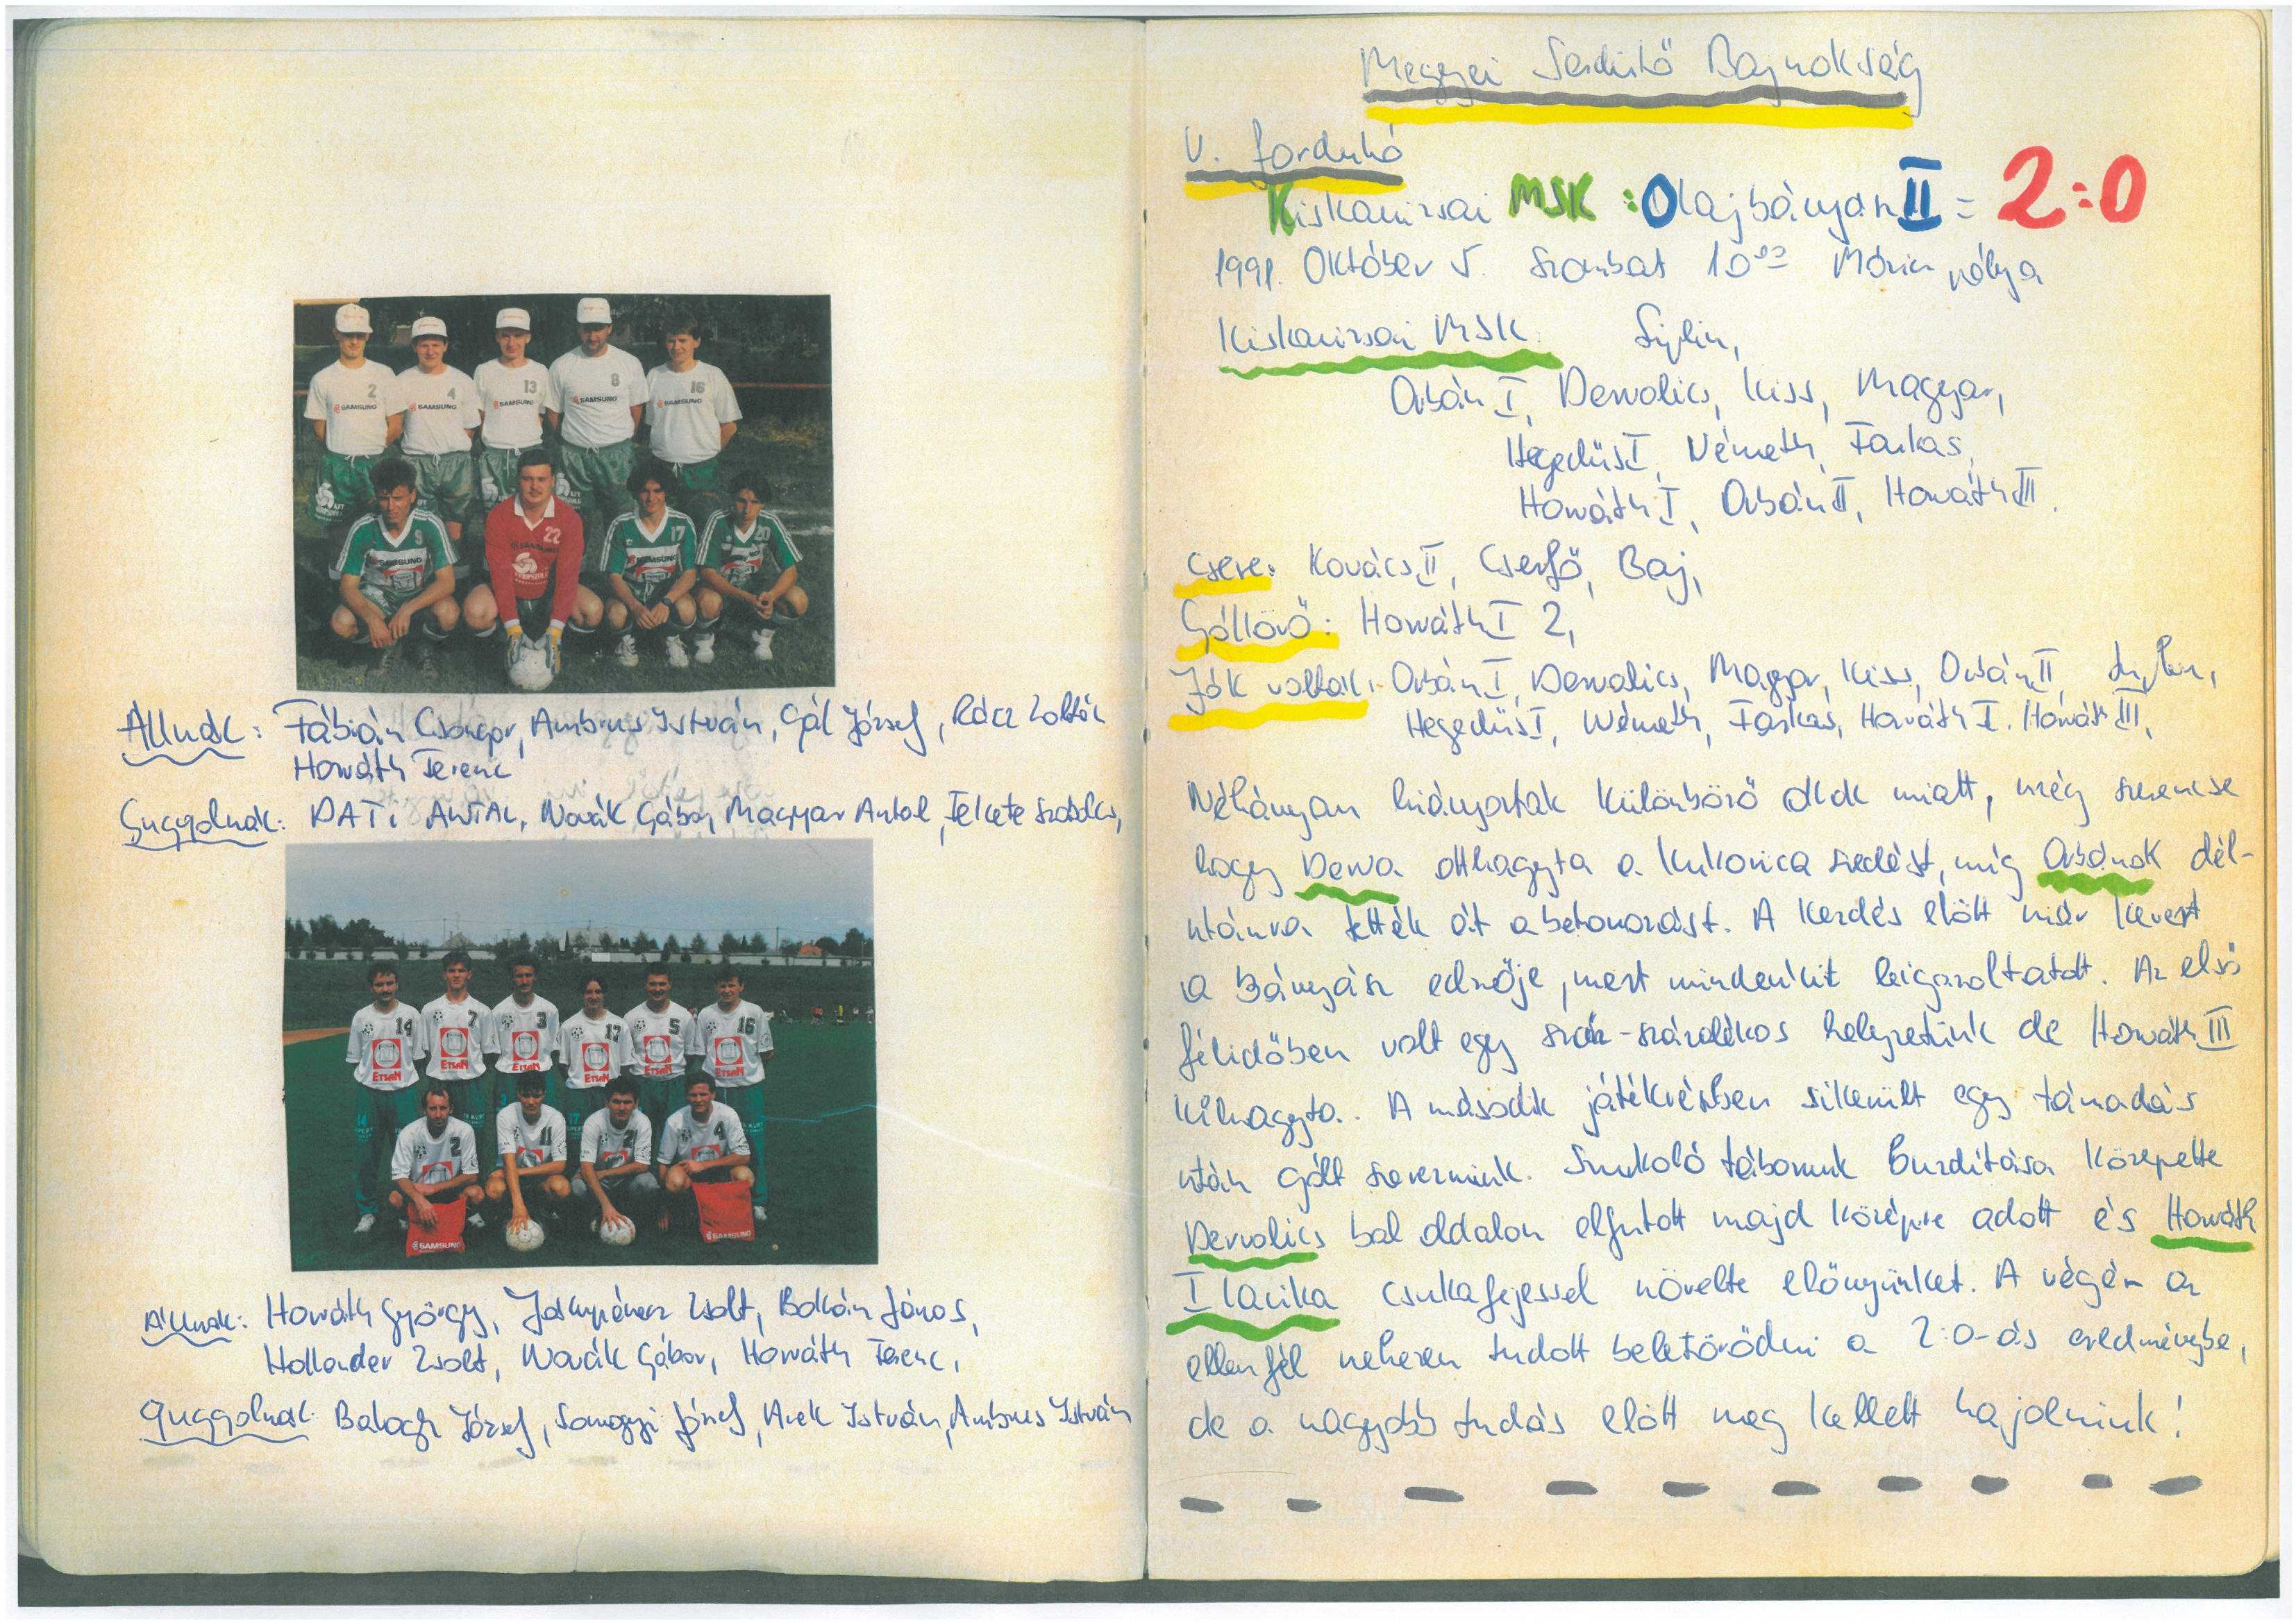 2
4
13
8
16
SAMSUNG
SAMSUNG
SAMSUNG
SAMSUNG
SAMSUNG
9
22
17
20
SAMSUNG
SAMSUNG
SAMSUNG
SAMSUNG
Állnak: Fábián Csongor, Ambrus István, Gál József, Rácz Zoltán
Horváth Ferenc
Guggolnak: DATI ANTAL, Novák Gábor, Magyar Antal, Fekete Szabolcs,
14
7
3
17
5
16
ETSAN
ETSAN
ETSAN
ETSAN
ETSAN
ETSAN
2
11
2
4
SAMSUNG
SAMSUNG
Állnak: Horváth György, Zsolt, Bolbán János,
Hollander Zsolt, Novák Gábor, Horváth Ferenc,
Guggolnak: Balogh József, Somogyi József, István, Ambrus István
Megyei Serdülő Bajnokság
V. forduló
Kiskanizsai MSK : Olajbányász II = 2:0
1991. Október 5. Szombat 10⁰⁰ Móricz pálya
Kiskanizsai MSK: Siplin,
Orbán I, Dervalics, Kiss, Magyar,
Hegedűs I, Németh, Farkas,
Horváth I, Orbán II, Horváth III.
Csere: Kovács II, Cserfő, Baj,
Góllövő: Horváth I 2,
Jók voltak: Orbán I, Dervalics, Magyar, Kiss, Orbán II, Siplin,
Hegedűs I, Németh, Farkas, Horváth I. Horváth III,
Néhányan hiányoztak különböző okok miatt, még szerencse
hogy Derva otthagyta a kukorica szedést, míg Orbánok dél-
utánra tették át a betonozást. A kezdés előtt már kevert
a Bányász edzője, mert mindenkit leigazoltatott. Az első
félidőben volt egy száz-százalékos helyzetünk de Horváth III
kihagyta. A második játékrészben sikerült egy támadás
után gólt szereznünk. Szurkoló táborunk buzdítása közepette
Dervalics bal oldalon elfutott majd középre adott és Horváth
I Lacika csukafejessel növelte előnyünket. A végén az
ellenfél nehezen tudott beletörődni a 2:0-ás eredménybe,
de a nagyobb tudás előtt meg kellett hajolniuk!